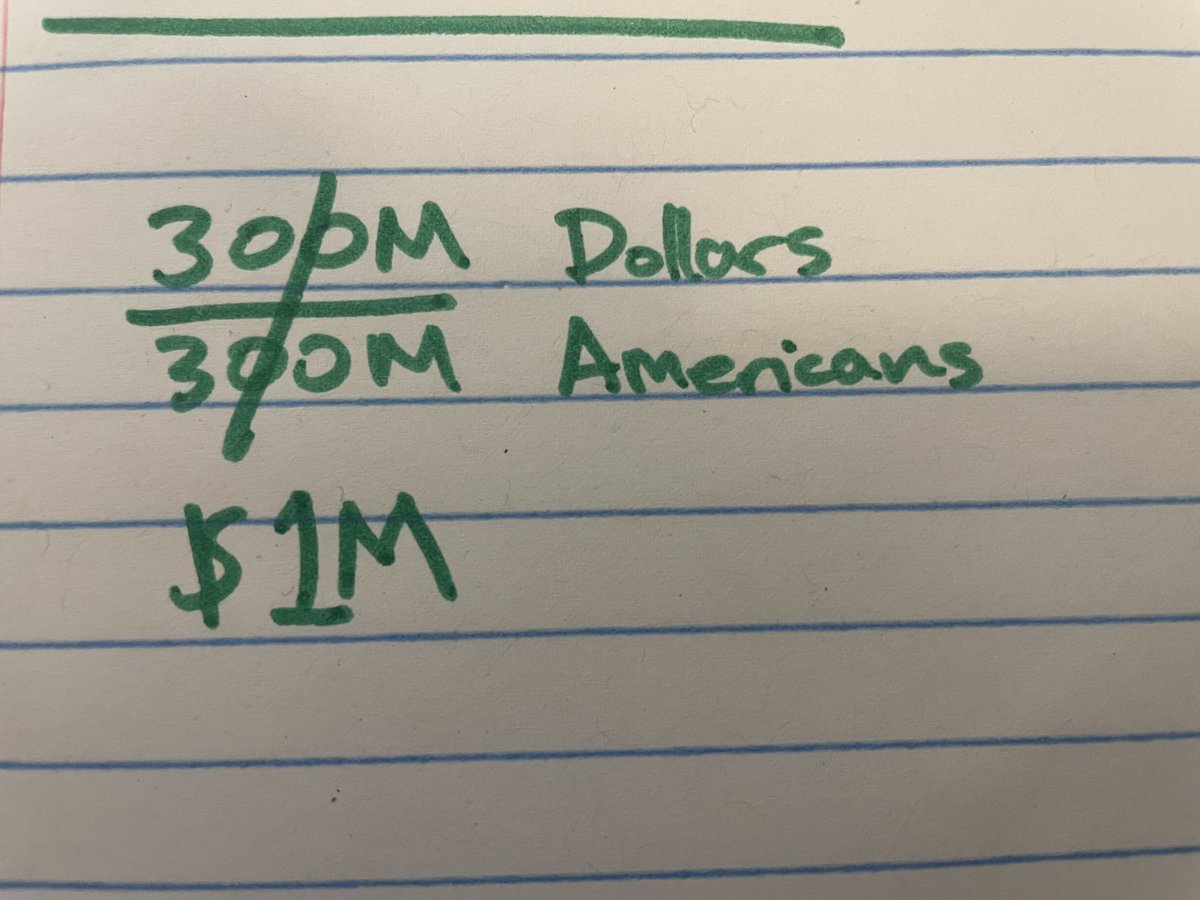 300M Dollars
300M Americans
$1M